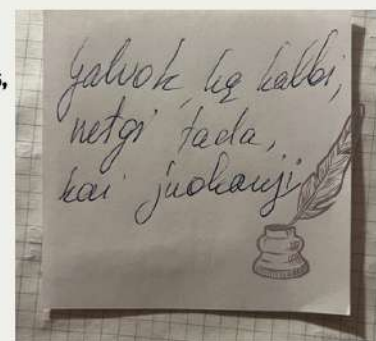 Galvok, ką kalbi,
netgi tada,
kai juokauji